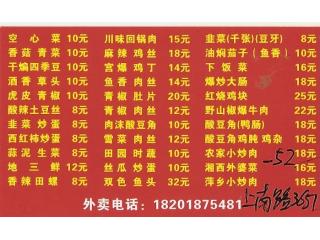 空心菜 10元 川味回锅肉 15元 韭菜(千张)(豆芽) 8元
香菇青菜 10元 麻辣鸡丝 14元 油焖茄子(鱼香) 10元
干煸四季豆 10元 宫爆鸡丁 14元 下饭菜 16元
酒香草头 10元 鱼香肉丝 14元 爆炒大肠 18元
虎皮青椒 10元 青椒肚片 20元 红烧鸡块 25元
酸辣土豆丝 8元 青椒牛肉 22元 野山椒爆牛肉 22元
韭菜炒蛋 10元 肉沫酸豆角 10元 酸豆角(鸭肠) 18元
西红柿炒蛋 10元 雪菜肉丝 12元 酸豆角鸡肫鸡杂 18元
蒜泥生菜 8元 田园时蔬 10元 农家小炒肉 18元
地三鲜 12元 丝瓜炒蛋 10元 湘西外婆菜 16元
香辣田螺 8元 双色鱼头 32元 萍乡小炒肉 18元
-52
外卖电话：18201875481 上南路3657